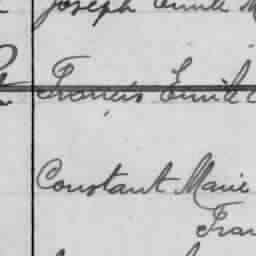 Joseph Emile
Francis Emile
Constant Marie
Fran